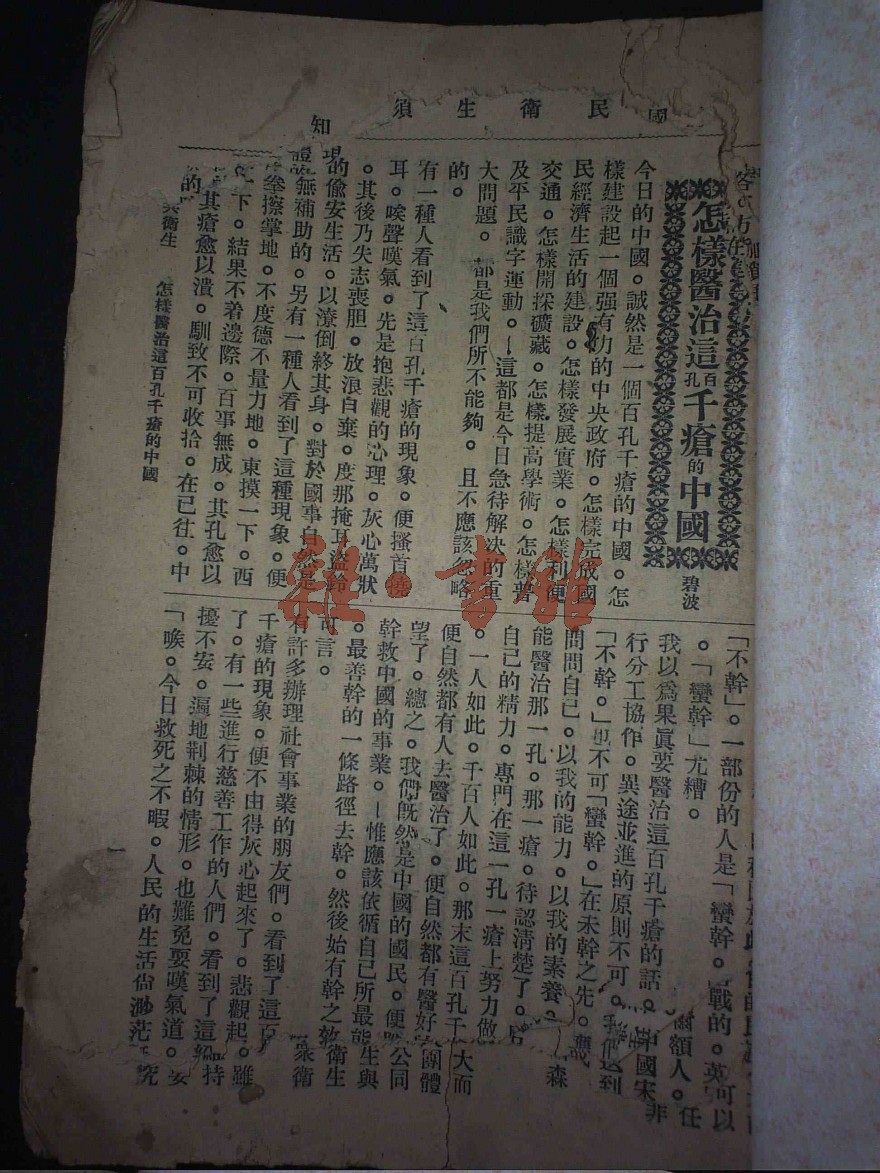 國民衛生須知
怎樣醫治這百孔千瘡的中國
碧波
今日的中國。誠然是一個百孔千瘡的中國。怎
樣建設起一個强有力的中央政府。怎樣完成國
民經濟生活的建設。怎樣發展實業。怎樣利便
交通。怎樣開採礦藏。怎樣提高學術。怎樣普
及平民識字運動。—這都是今日急待解決的重
大問題。都是我們所不能夠。且不應該忽略
的。
有一種人看到了這百孔千瘡的現象。便搔首撓
耳。唉聲嘆氣。先是抱悲觀的心理。灰心萬狀
。其後乃失志喪胆。放浪自棄。度那掩耳盜鈴
的偷安生活。以潦倒終其身。對於國事自然是
無補助的。另有一種人看到了這種現象。便
拳擦掌地。不度德不量力地。東摸一下。西
一下。結果不着邊際。百事無成。其孔愈以
其瘡愈以潰。馴致不可收拾。在已往。中
的
「不幹」。一部份的人是「蠻幹。
。「蠻幹」尤糟。
我以爲果眞要醫治這百孔千瘡的話。
行分工協作。異途並進的原則不可。我們
「不幹。」也不可「蠻幹。」在未幹之先。應
問問自己。以我的能力。以我的素養。
能醫治那一孔。那一瘡。待認清楚了。
自己的精力。專門在這一孔一瘡上努力做
。一人如此。千百人如此。那末這百孔千
便自然都有人去醫治了。便自然都有醫好
望了。總之。我們旣然是中國的國民。便
幹救中國的事業。—惟應該依循自己所最能
。最善幹的一條路徑去幹。然後始有幹之效
可言。
有許多辦理社會事業的朋友們。看到了這百
千瘡的現象。便不由得灰心起來了。悲觀起
了。有一些進行慈善工作的人們。看到了這
擾不安。遍地荆棘的情形。也難免要嘆氣道。
「唉。今日救死之不暇。人民的生活尙渺茫
衛生　怎樣醫治這百孔千瘡的中國
一
戰的。英可以
額人。任
中國宋非
森
大而
團體
公同
生與
衛生
衆衛
雖
持
究